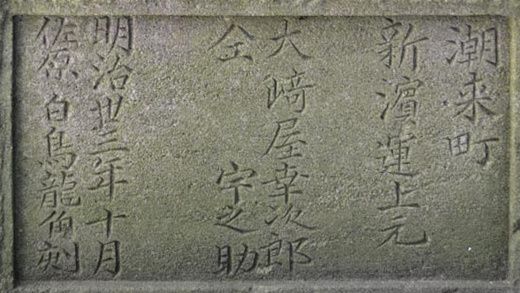 潮来町
新濱運上元
大﨑屋幸次郎
仝 宇之助
明治卅三年十月
佐原 白鳥龍刻